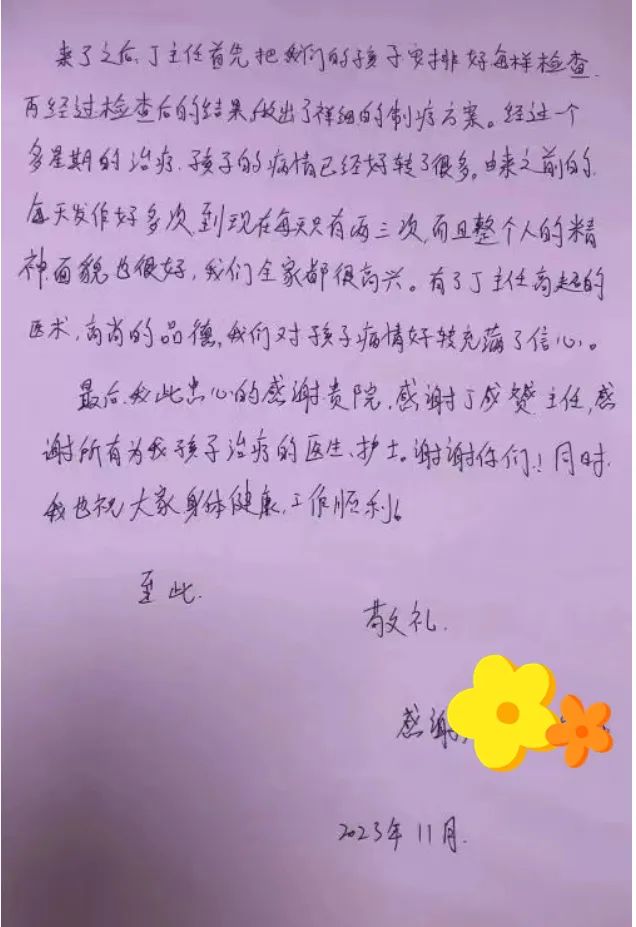 来了之后,丁主任首先把我们的孩子安排好每样检查.
再经过检查后的结果,做出了祥细的制疗方案。经过一个
多星期的治疗.孩子的病情已经好转了很多。由来之前的.
每天发作好多次,到现在每天只有两三次,而且整个人的精
神面貌也很好,我们全家都很高兴。有了丁主任高超的
医术,高尚的品德,我们对孩子病情好转充满了信心。
最后,我此忠心的感谢贵院,感谢丁成赟主任,感
谢所有为我孩子治疗的医生、护士。谢谢你们!同时.
我也祝大家身体健康,工作顺利。
至此.
敬礼.
感谢
2023年11月.